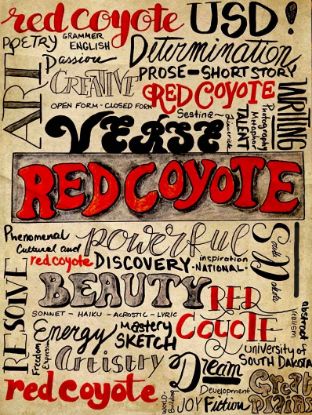 red coyote USD!
POETRY GRAMMER ENGLISH Determination
Passion
ART
CREATIVE PROSE - SHORT STORY
OPEN FORM - CLOSED FORM RED COYOTE
WRITING
Sestina - Limerick
Photography
Metaphor
TALENT
VERSE
RED COYOTE
Phenomenal powerful
Cultural and
red coyote DISCOVERY inspiration
-NATIONAL-
South Dakota
BEAUTY RED COYOTE
RESOLVE
SONNET - HAIKU - ACROSTIC - LYRIC
Energy Mastery SKETCH
Freedom
Artistry Dream
abstract
University of SOUTH DAKOTA
red coyote
Development
World-Building
JOY Fiction
Great Plains